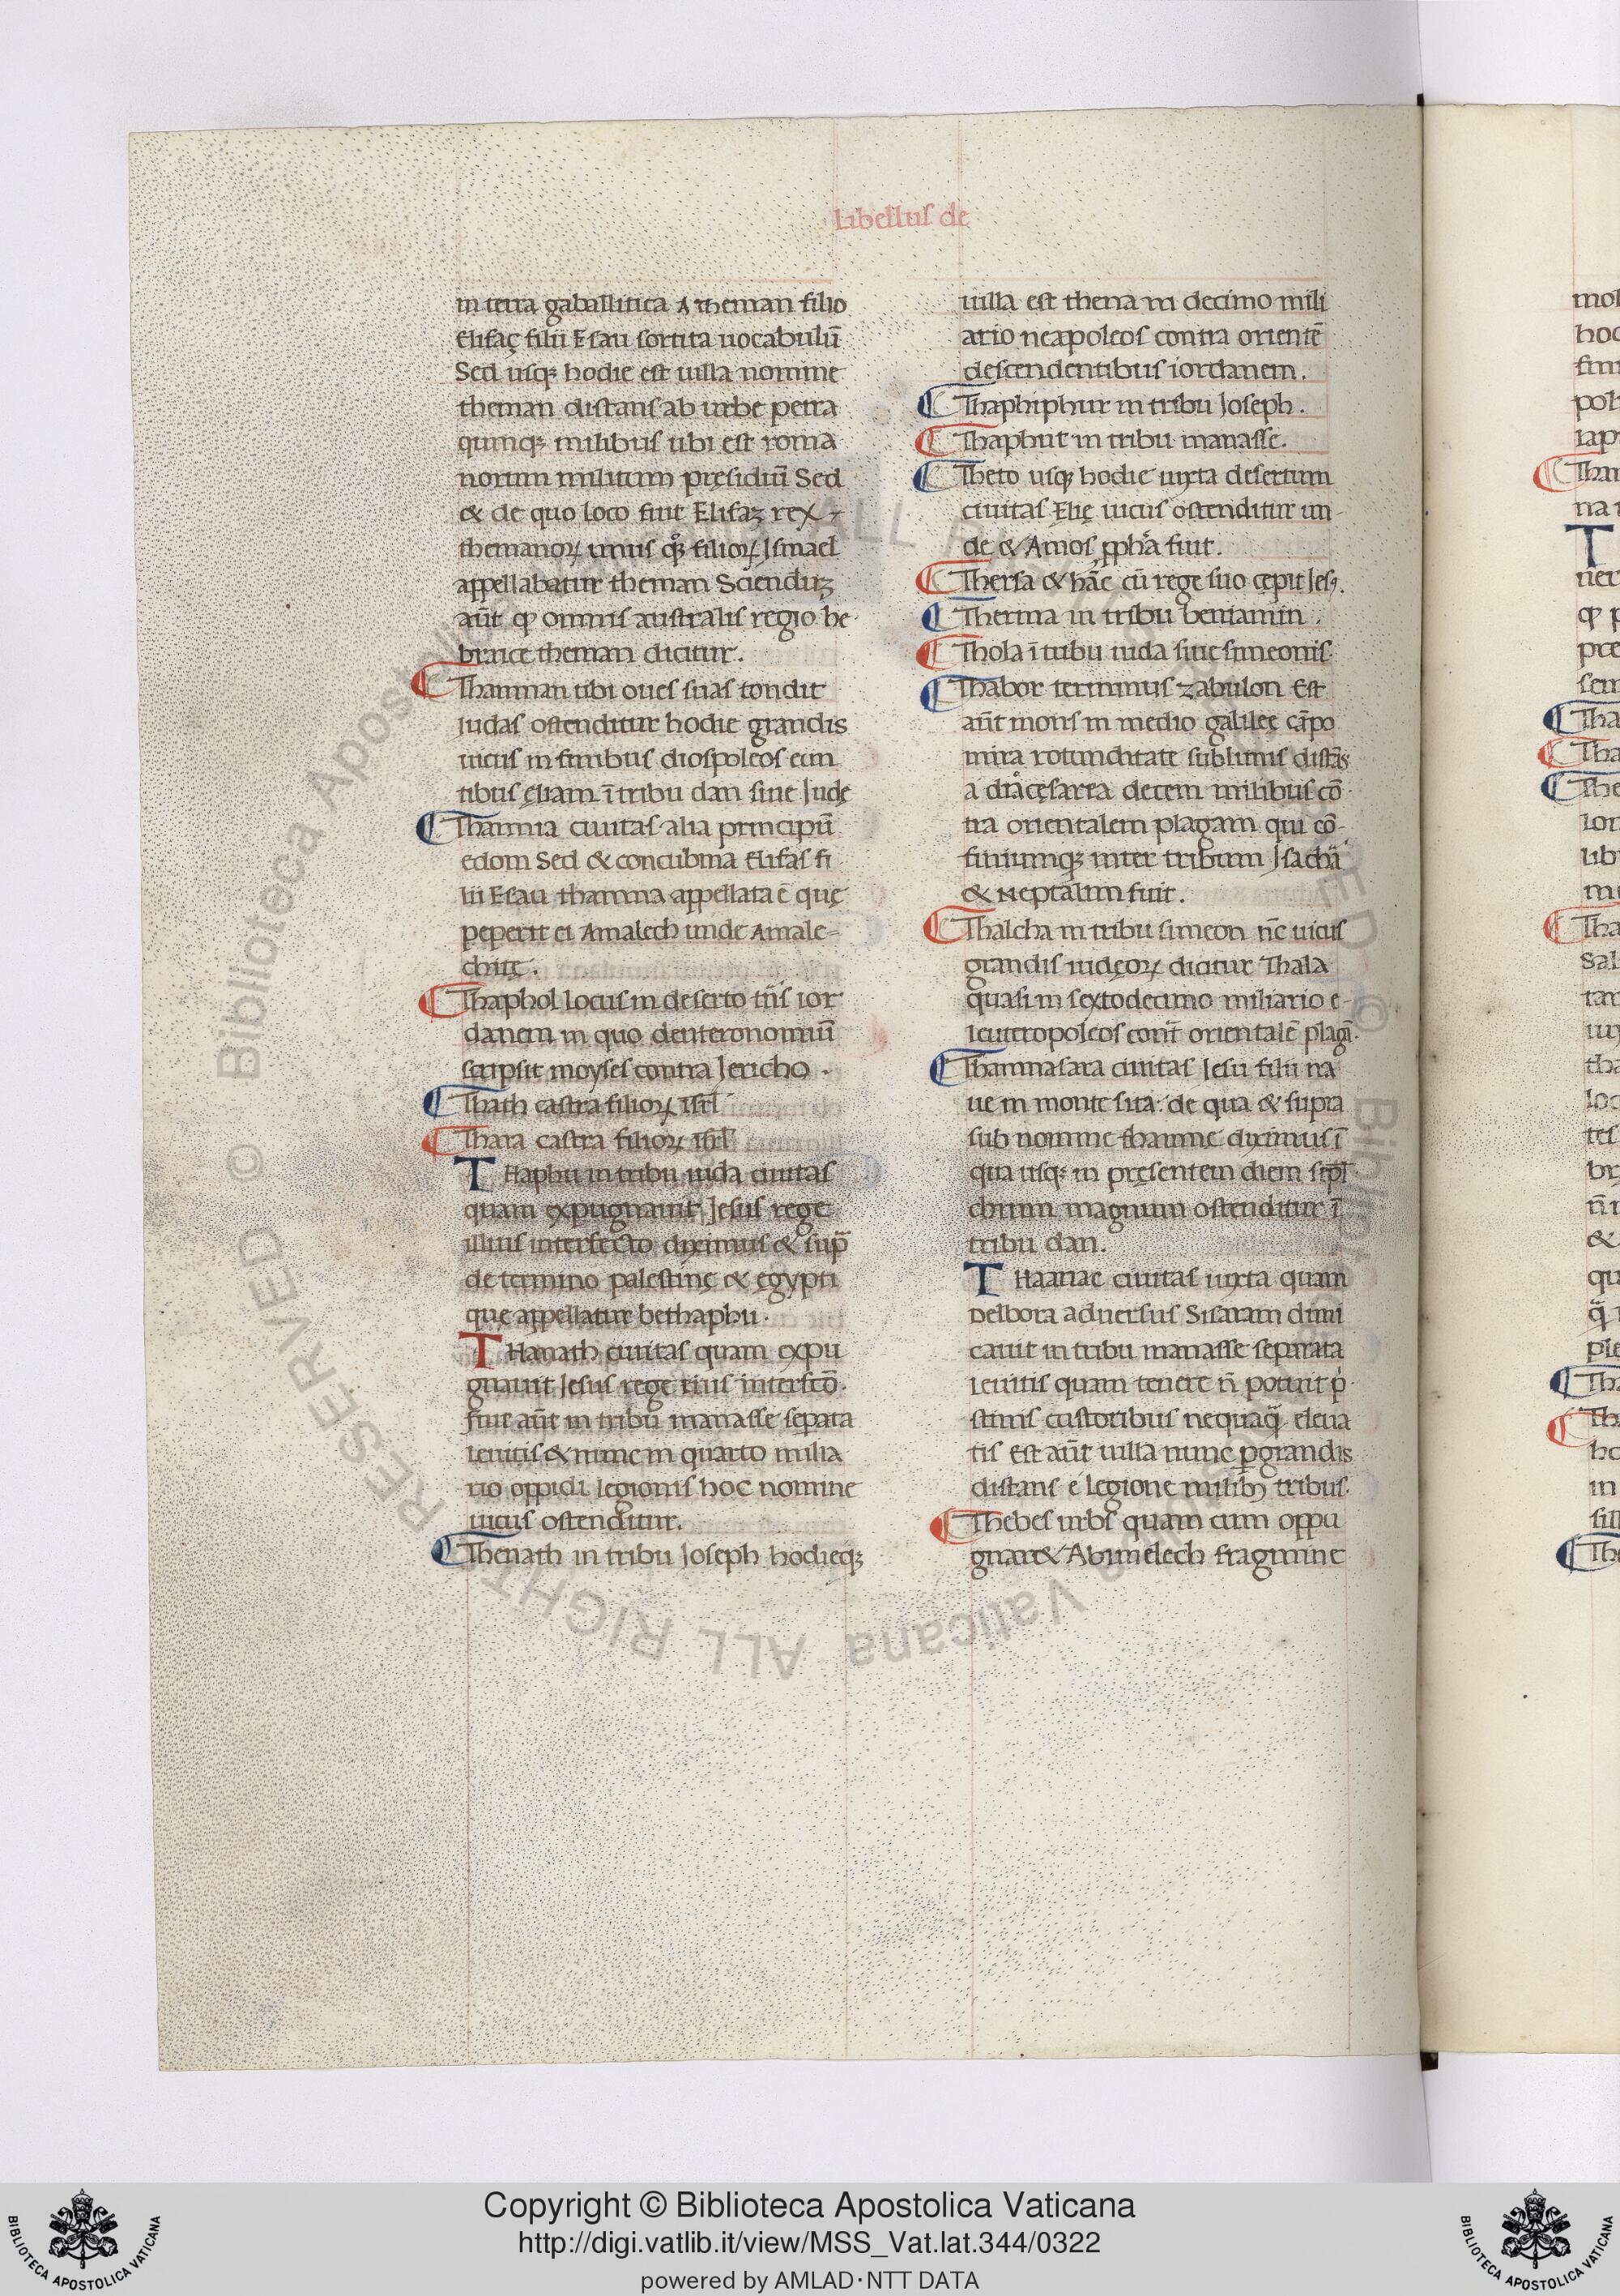 libellus de
in terra gaballitica A theman filio
Elifaç filii Esau sortita uocabulū
Sed usq; hodie est uilla nomine
theman distans ab urbe petra
quinq; milibus ubi est roma
norum militum pręsidiū Sed
& de quo loco fuit Elifaz rex
themanoꝝ unus qͦz filioꝝ Ismael
appellabatur theman Scienduz
aūt ꝙ omnis australis regio he
braice theman dicitur.
Thamnan ubi oues suas tondit
Iudas ostenditur hodie grandis
uicus in finibus diospoleos eun
tibus ęliam ī tribu dan siue Iudę
Thamna ciuitas alia principū
edom Sed & concubina Elifas fi
lii Esau thamna appellata ē quę
peperit ei Amalech unde Amale-
chitę.
Thaphol locus in deserto tn̄s ior
danem in quo deuteronomiū
scripsit moyses contra Iericho.
Thath castra filioꝝ isrl̄
Thara castra filioꝝ isrl̄
THaphu in tribu iuda ciuitas
quam expugnauit Iesus rege
illius interfecto diximus & sup̄
de termino palestinę & ęgypti
quę appellatur bethaphu.
THanath ciuitas quam expu
gnauit Iesus rege eius interfcō.
fuit aūt in tribu manasse sepata
leuitis & nunc in quarto milia
rio oppidi legionis hoc nomine
uicus ostenditur.
Thenath in tribu Ioseph hodieq;
uilla est thena in decimo mili
ario neapoleos contra orientē
descendentibus iordanem.
Thaphiphur in tribu Ioseph.
Thaphut in tribu manasse.
Theto usq; hodie iuxta desertum
ciuitas Elię uicus ostenditur un-
de & Amos ppha fuit.
Thersa & hāc cū rege suo cępit Ies;.
Therma in tribu beniamin.
Thola ī tribu iuda siue simeonis
Thabor terminus zabulon Est
aūt mons in medio galileę cāpo
mira rotunditate sublimis distās
a dioͨcęsarea decem milibus cō
tra orientalem plagam qui cō-
finiumq; inter tribum Isachā
& Neptalim fuit.
Thalcha in tribu simeon nc̄ uicus
grandis iudęoꝝ dicitur Thala
quasi in sextodecimo miliario e-
leuteropoleos cont̄ orientalē plagā.
Thamnasara ciuitas Iesu filii na
ue in monte sita: de qua & supra
sub nomine thamne diximus ī
qua usq; in pręsentem diem sepl
chrum magnum ostenditur ī
tribu dan.
THaanac ciuitas iuxta quam
Delbora aduersus Sisaram dimi
cauit in tribu manasse separata
leuitis quam tenere n̄ potuit p̄
stinis custoribus nequaq̄ eleua
tis Est aūt uilla nunc ꝑgrandis
distans e legione milibꝫ tribus.
Thebes urbs quam cum oppu
gnar& Abimelech fragmine
T
Copyright © Biblioteca Apostolica Vaticana
http://digi.vatlib.it/view/MSS_Vat.lat.344/0322
powered by AMLAD·NTT DATA
BIBLIOTECA APOSTOLICA VATICANA
BIBLIOTECA APOSTOLICA VATICANA